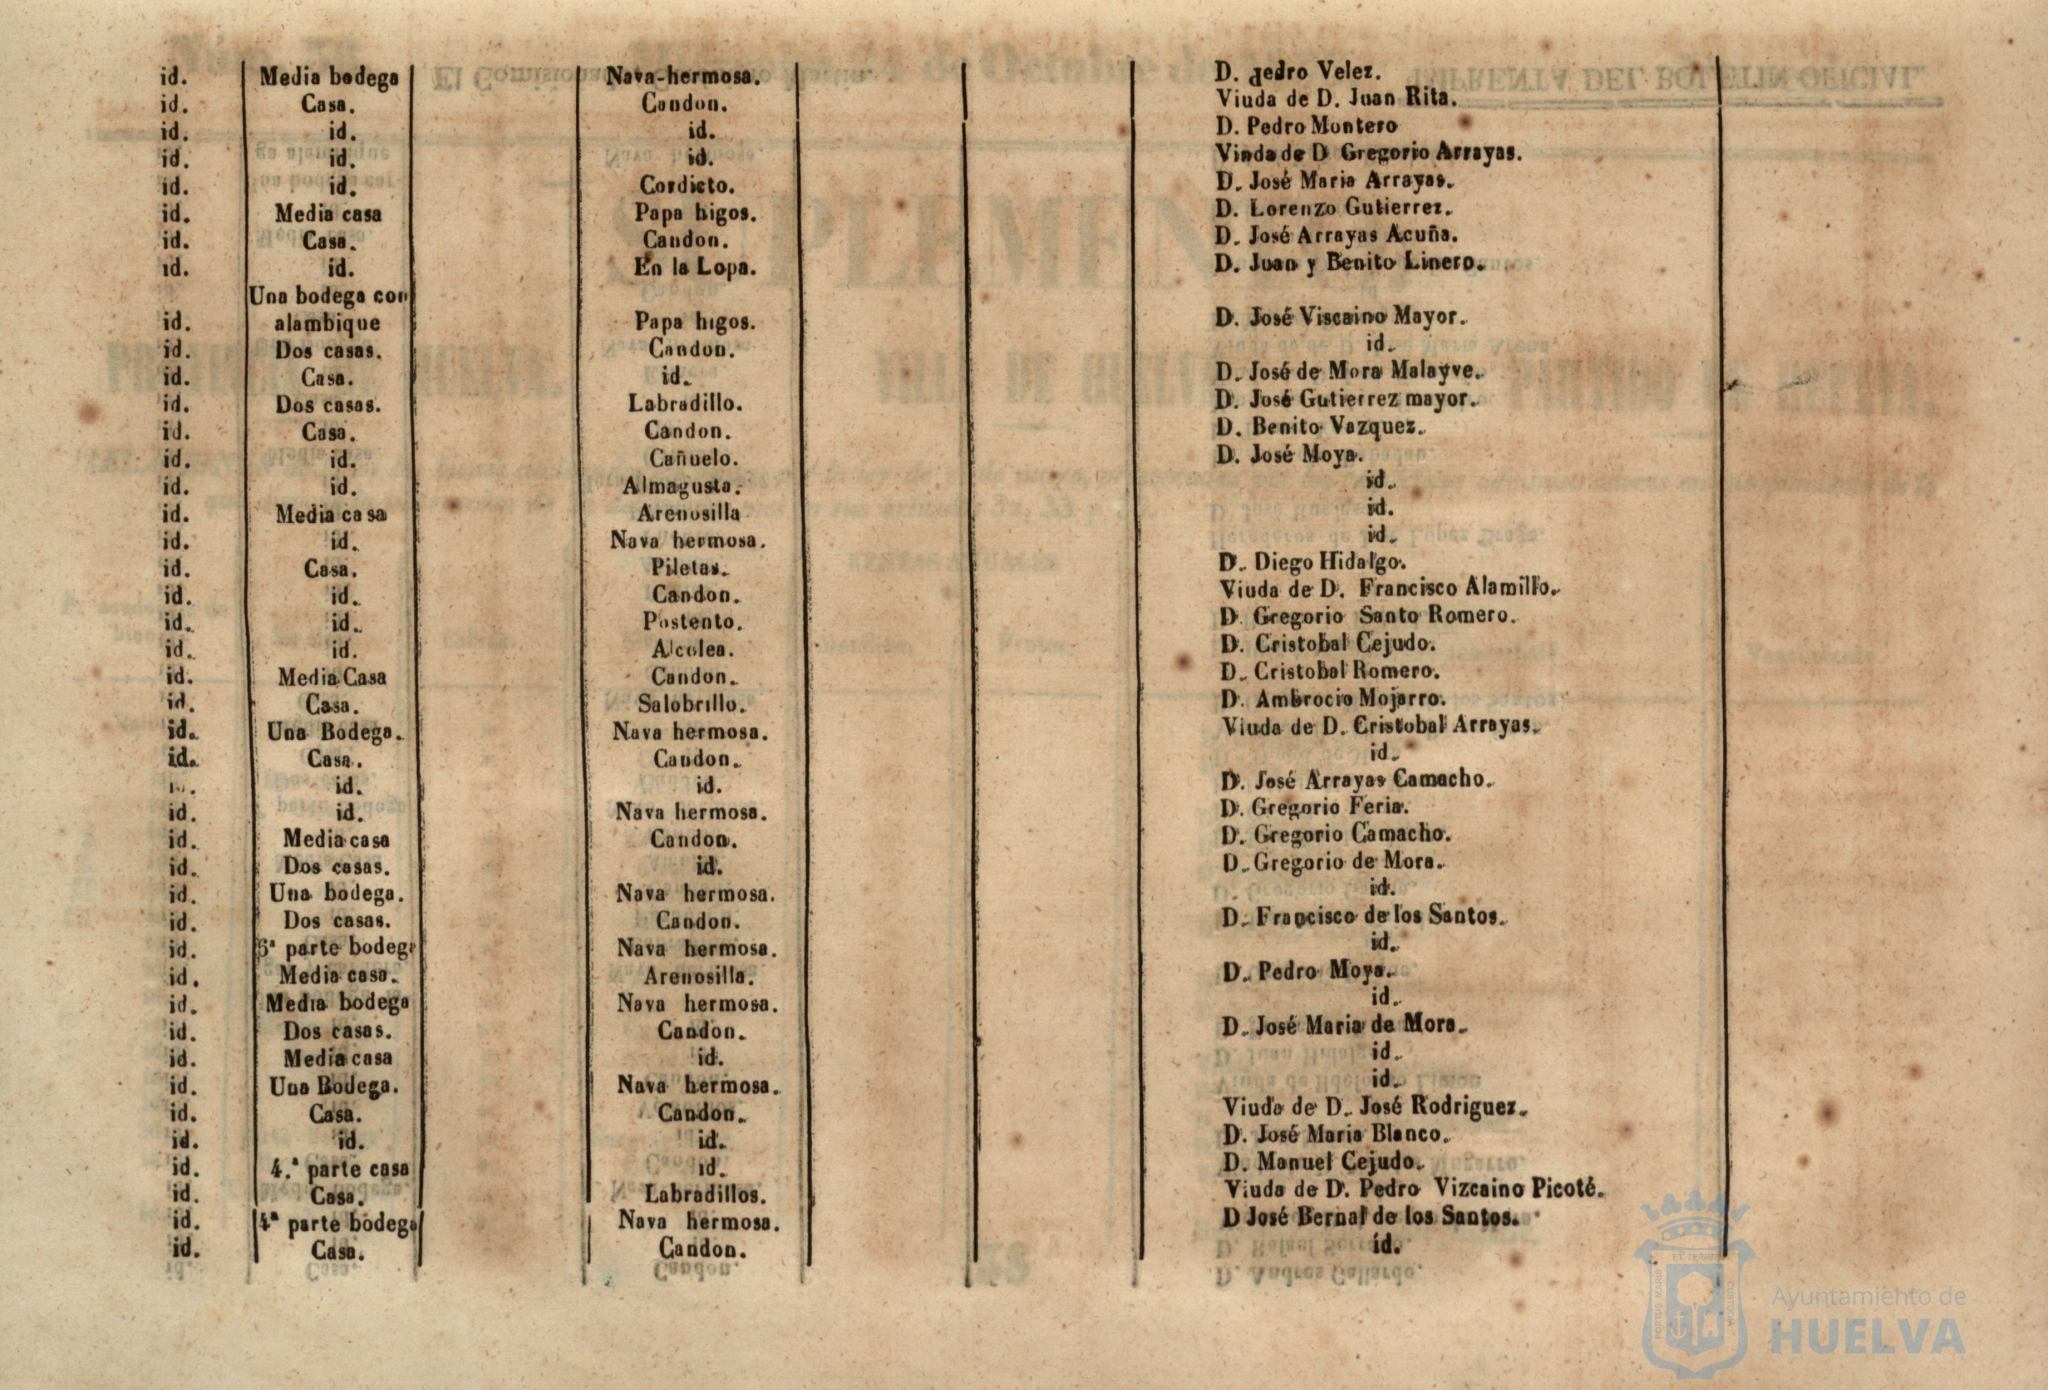 id. Media bodega Nava-hermosa. D. Pedro Velez.
id. Casa. Candon. Viuda de D. Juan Rita.
id. id. id. D. Pedro Montero
id. id. id. Viuda de D Gregorio Arrayas.
id. id. Cordieto. D. José Maria Arrayas.
id. Media casa Papa higos. D. Lorenzo Gutierrez.
id. Casa. Candon. D. José Arrayas Acuña.
id. id. En la Lopa. D. Juan y Benito Linero.
Una bodega con
id. alambique Papa higos. D. José Viscaino Mayor.
id. Dos casas. Candon. id.
id. Casa. id. D. José de Mora Malayve.
id. Dos casas. Labradillo. D. José Gutierrez mayor.
id. Casa. Candon. D. Benito Vazquez.
id. id. Cañuelo. D. José Moya.
id. id. Almagusta. id.
id. Media casa Arenosilla id.
id. id. Nava hermosa. id.
id. Casa. Piletas. D. Diego Hidalgo.
id. id. Candon. Viuda de D. Francisco Alamillo.
id. id. Postento. D. Gregorio Santo Romero.
id. id. Alcolea. D. Cristobal Cejudo.
id. Media Casa Candon. D. Cristobal Romero.
id. Casa. Salobrillo. D. Ambrocio Mojarro.
id. Una Bodega. Nava hermosa. Viuda de D. Cristobal Arrayas.
id. Casa. Candon. id.
id. id. id. D. José Arrayas Camacho.
id. id. Nava hermosa. D. Gregorio Feria.
id. Media casa Candon. D. Gregorio Camacho.
id. Dos casas. id. D. Gregorio de Mora.
id. Una bodega. Nava hermosa. id.
id. Dos casas. Candon. D. Francisco de los Santos.
id. 5ª parte bodega Nava hermosa. id.
id. Media casa. Arenosilla. D. Pedro Moya.
id. Media bodega Nava hermosa. id.
id. Dos casas. Candon. D. José Maria de Mora.
id. Media casa id. id.
id. Una Bodega. Nava hermosa. id.
id. Casa. Candon. Viuda de D. José Rodriguez.
id. id. id. D. José Maria Blanco.
id. 4.ª parte casa id. D. Manuel Cejudo.
id. Casa. Labradillos. Viuda de D. Pedro Vizcaino Picoté.
id. 4ª parte bodega Nava hermosa. D José Bernal de los Santos.
id. Casa. Candon. id.
Ayuntamiento de
HUELVA